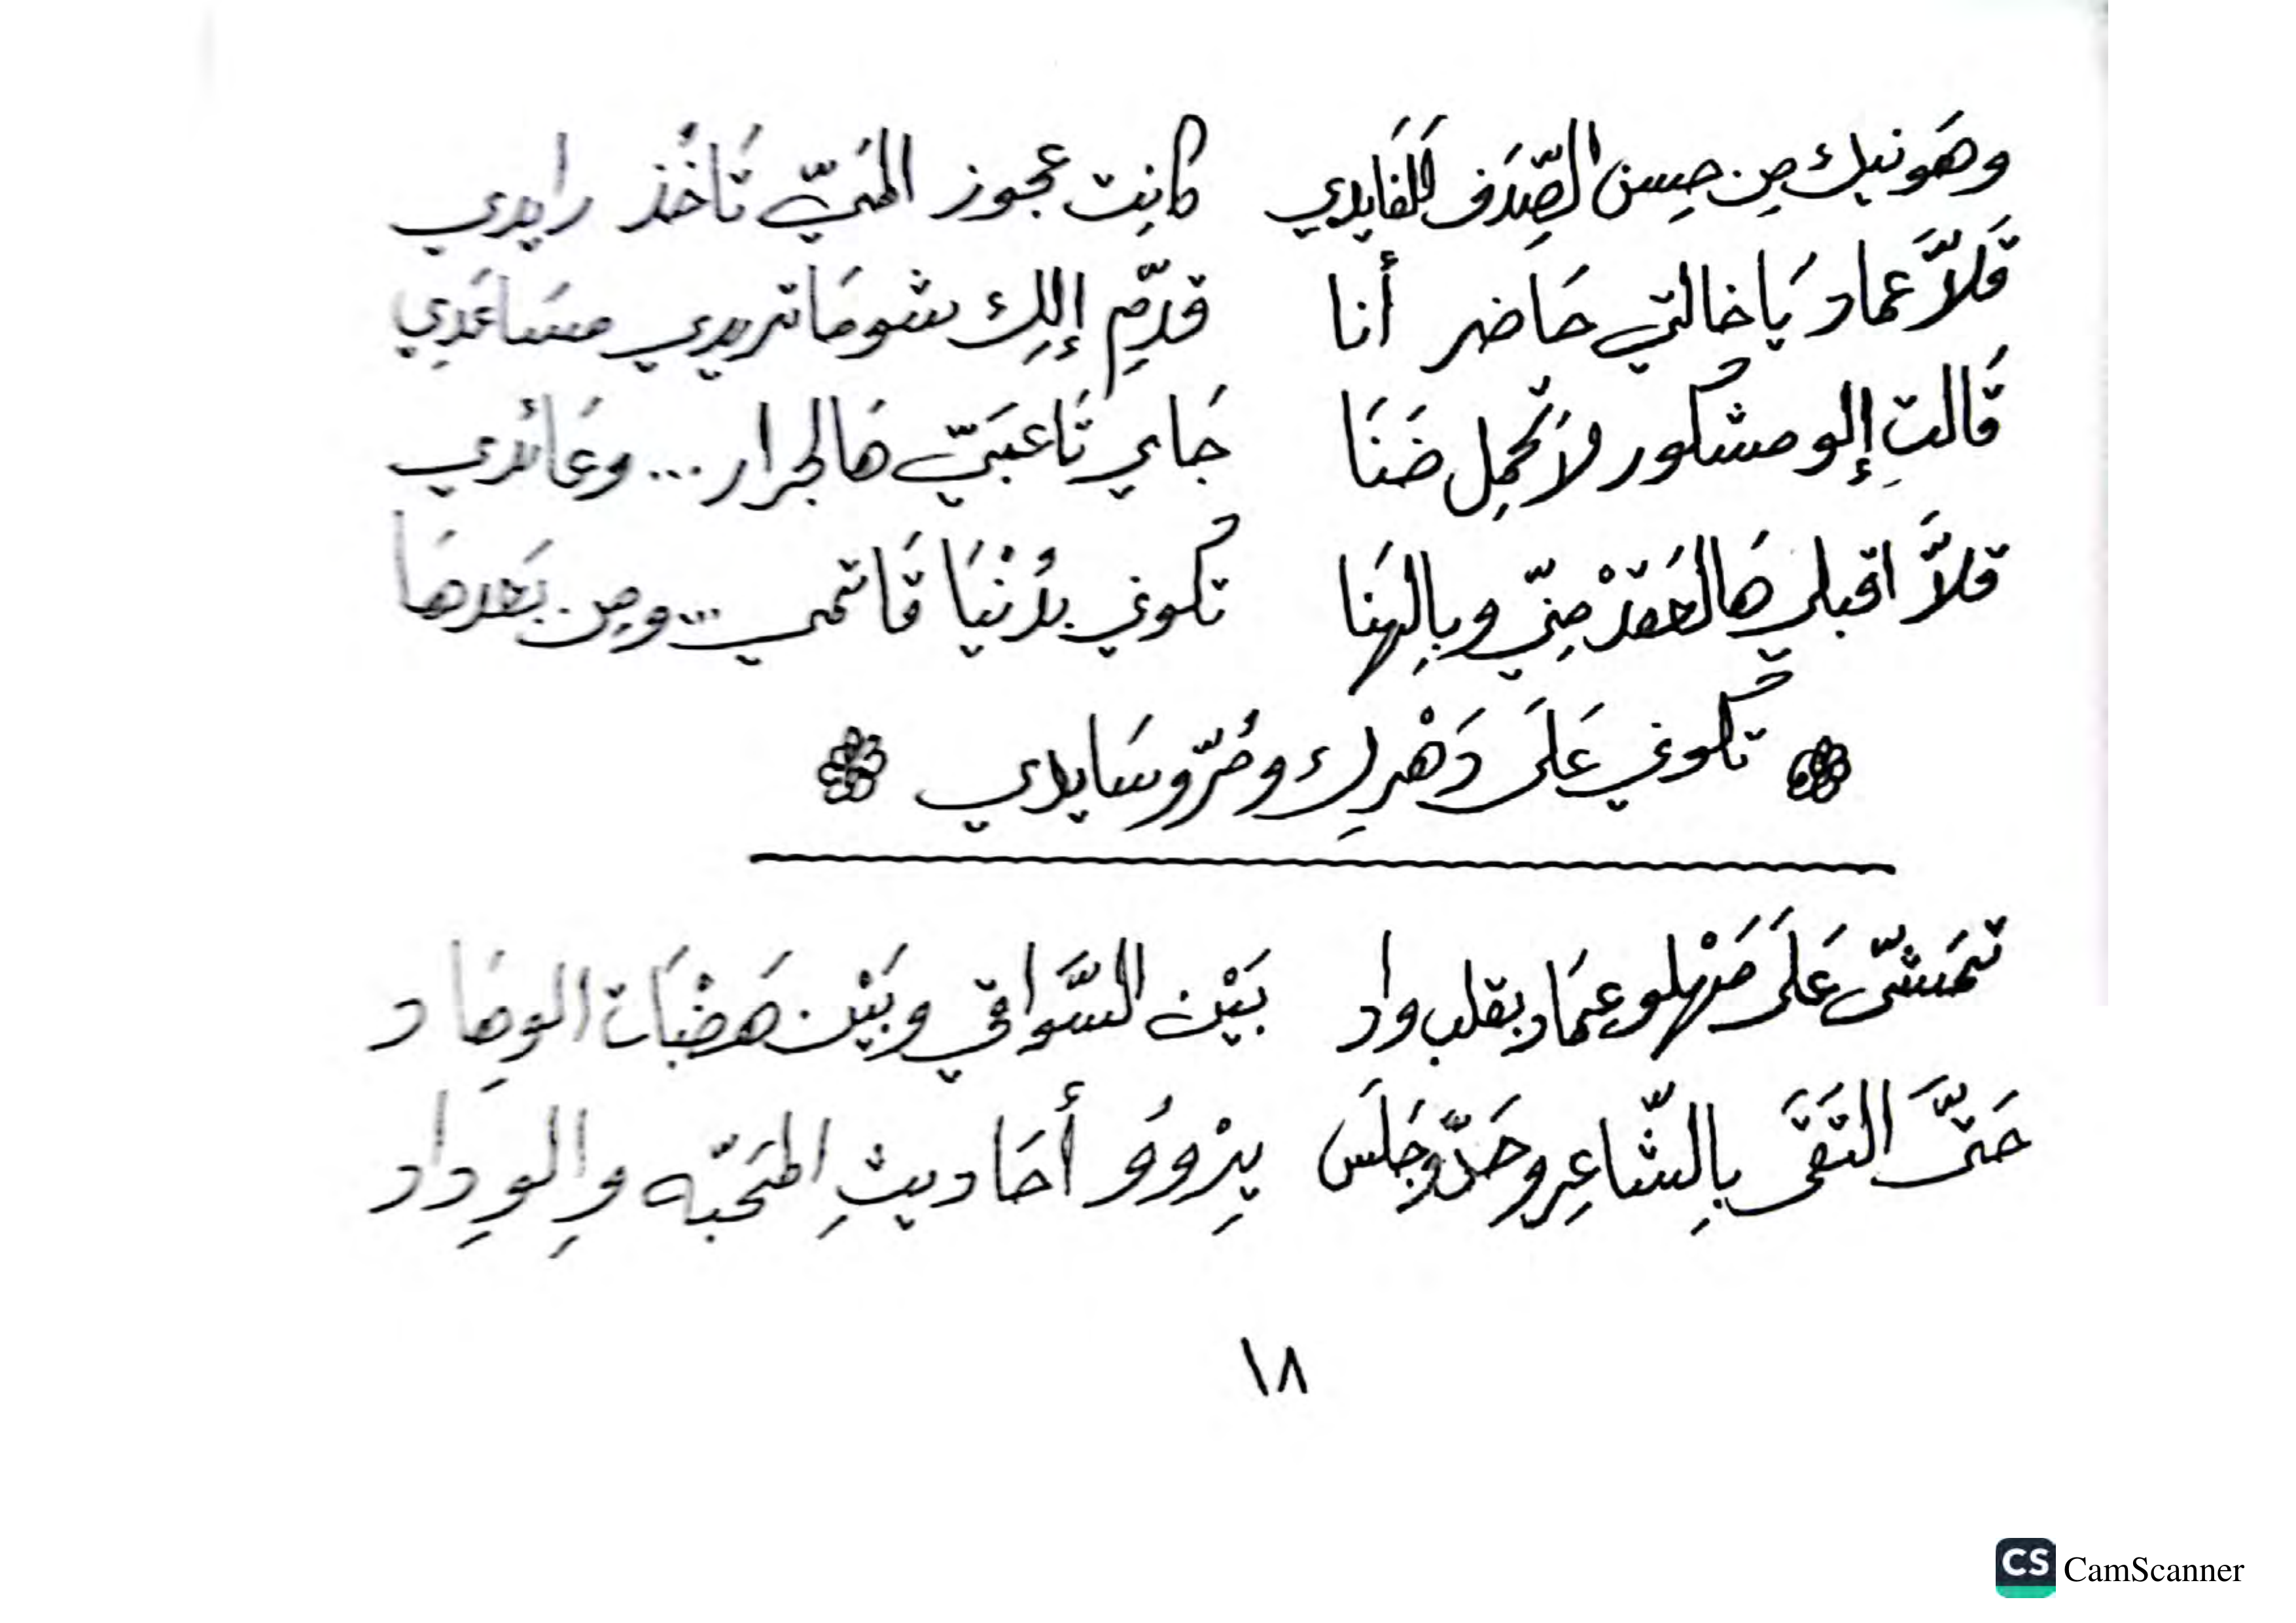 وهَونيك مِن حِسن الصِّدَف للفَايدي كانِت عجوز المَيّ تَاخُذ رايدي
قَلاَّ عماد يَا خالتي حَاضر أنا قدِّم إلِك شو مَا تريدي مسَاعَدِي
قَالتِ إلو مشكور لاَ تحْمِل ضَنَا جَاي تَاعبّي هَالجرار ... وعَائدي
قلاَّ اقبلي هَالعَقدْ مِنّي وبِالهَنا تكوني بدُنْيَا فَاتمي ... ومِن بَعدهَا
تكوني عَلَى دَهْرِك ومُرّو سَايدي
تمَشّى عَلَى مَهْلو عِمَاد بقلب واد بَيْن السَّواقي وبَيْن هَضْبَات الوِهَاد
حَتَّى التَقَى بِالشّاعِر وحَدّو جَلَس يِرْووُ أحَاديثِ المَحَبّه وِالوِداد
١٨
CS CamScanner